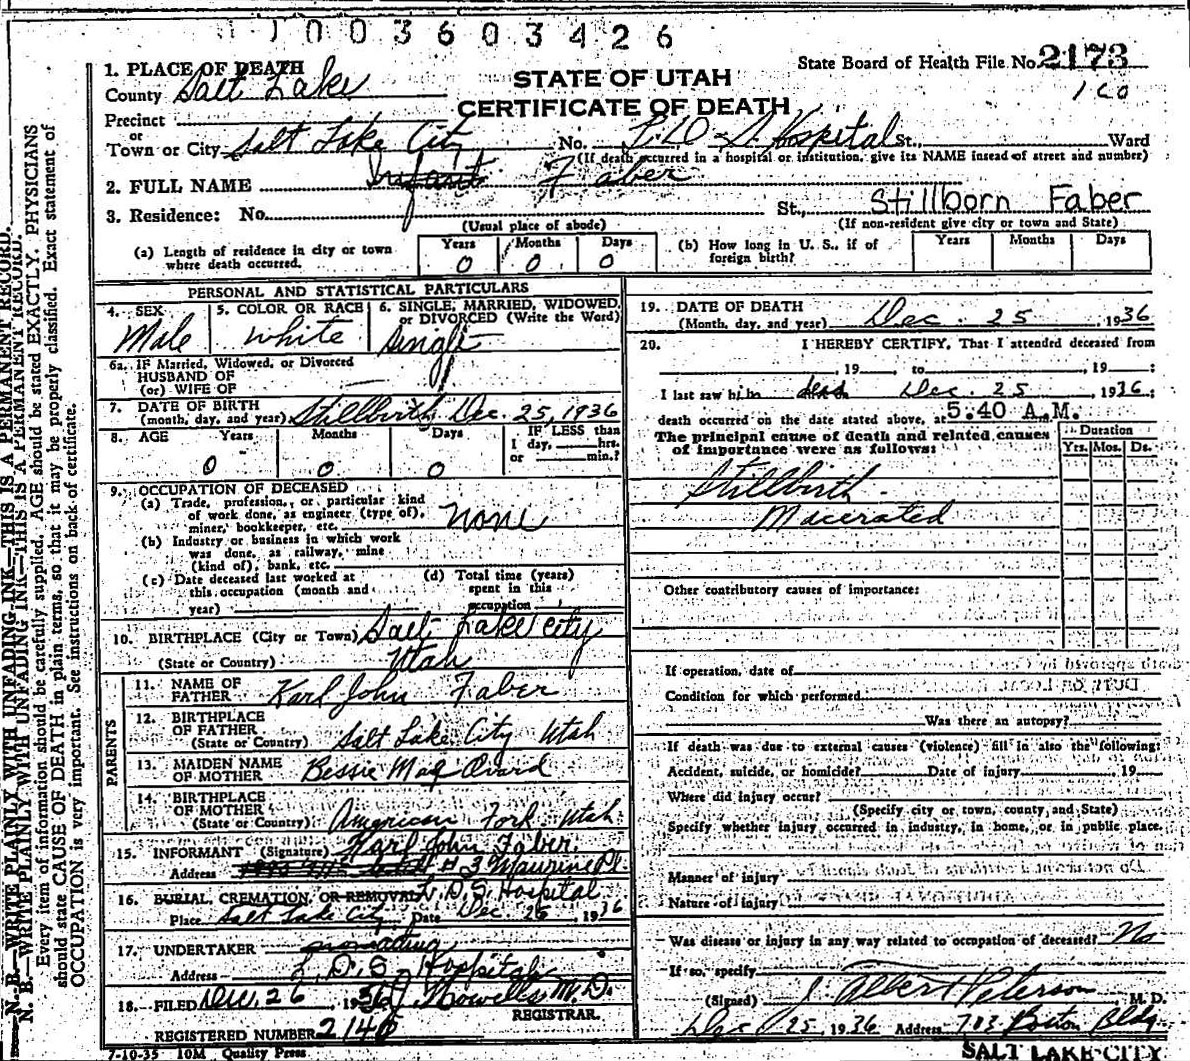 1003603426
State Board of Health File No. 2173
160
STATE OF UTAH
CERTIFICATE OF DEATH
1. PLACE OF DEATH
County Salt Lake
Precinct
or
Town or City Salt Lake City No. L. D. S. Hospital St., Ward
(If death occurred in a hospital or institution, give its NAME instead of street and number)
2. FULL NAME Infant Faber
Stillborn Faber
3. Residence: No. St.,
(Usual place of abode) (If non-resident give city or town and State)
(a) Length of residence in city or town where death occurred. Years 0 Months 0 Days 0
(b) How long in U. S., if of foreign birth? Years Months Days
PERSONAL AND STATISTICAL PARTICULARS
4. SEX Male
5. COLOR OR RACE White
6. SINGLE, MARRIED, WIDOWED, or DIVORCED (Write the Word) Single
6a. IF Married, Widowed, or Divorced
HUSBAND OF
(or) WIFE OF
7. DATE OF BIRTH
(month, day, and year) Stillbirth Dec. 25, 1936
8. AGE Years 0 Months 0 Days 0
IF LESS than 1 day, hrs. or min.?
9. OCCUPATION OF DECEASED
(a) Trade, profession, or particular kind
of work done, as engineer (type of),
miner, bookkeeper, etc. none
(b) Industry or business in which work
was done, as railway, mine
(kind of), bank, etc.
(c) Date deceased last worked at
this occupation (month and
year)
(d) Total time (years)
spent in this
occupation
10. BIRTHPLACE (City or Town) Salt Lake City
(State or Country) Utah
PARENTS
11. NAME OF
FATHER Karl John Faber
12. BIRTHPLACE
OF FATHER
(State or Country) Salt Lake City Utah
13. MAIDEN NAME
OF MOTHER Bessie May Ovard
14. BIRTHPLACE
OF MOTHER
(State or Country) American Fork Utah
15. INFORMANT (Signature) Karl John Faber
Address # 3 Maurine Pl
16. BURIAL, CREMATION, OR REMOVAL L. D. S. Hospital
Place Salt Lake City Date Dec 25, 1936
17. UNDERTAKER
Address L. D. S. Hospital
18. FILED Dec. 26, 1936 M. D.
REGISTRAR.
REGISTERED NUMBER 2140
7-10-35 10M Quality Press
19. DATE OF DEATH
(Month, day, and year) Dec. 25, 1936
20. I HEREBY CERTIFY, That I attended deceased from
, 19 to , 19 ;
I last saw h Dec. 25, 1936;
death occurred on the date stated above, at 5:40 A.M.
The principal cause of death and related causes
of importance were as follows:
Duration
Yrs. Mos. Ds.
Stillbirth
Macerated
Other contributory causes of importance:
If operation, date of
Condition for which performed
Was there an autopsy?
If death was due to external causes (violence) fill in also the following:
Accident, suicide, or homicide? Date of injury , 19
Where did injury occur?
(Specify city or town, county, and State)
Specify whether injury occurred in industry, in home, or in public place.
Manner of injury
Nature of injury
Was disease or injury in any way related to occupation of deceased? No
If so, specify
(Signed) J. Albert Peterson M. D.
Dec 25, 1936 Address 703 Boston Bldg.
SALT LAKE CITY
N. B.—WRITE PLAINLY WITH UNFADING INK—THIS IS A PERMANENT RECORD.
N. B.—WRITE PLAINLY WITH UNFADING INK—THIS IS A PERMANENT RECORD.
Every item of information should be carefully supplied. AGE should be stated EXACTLY. PHYSICIANS
should state CAUSE OF DEATH in plain terms, so that it may be properly classified. Exact statement of
OCCUPATION is very important. See instructions on back of certificate.